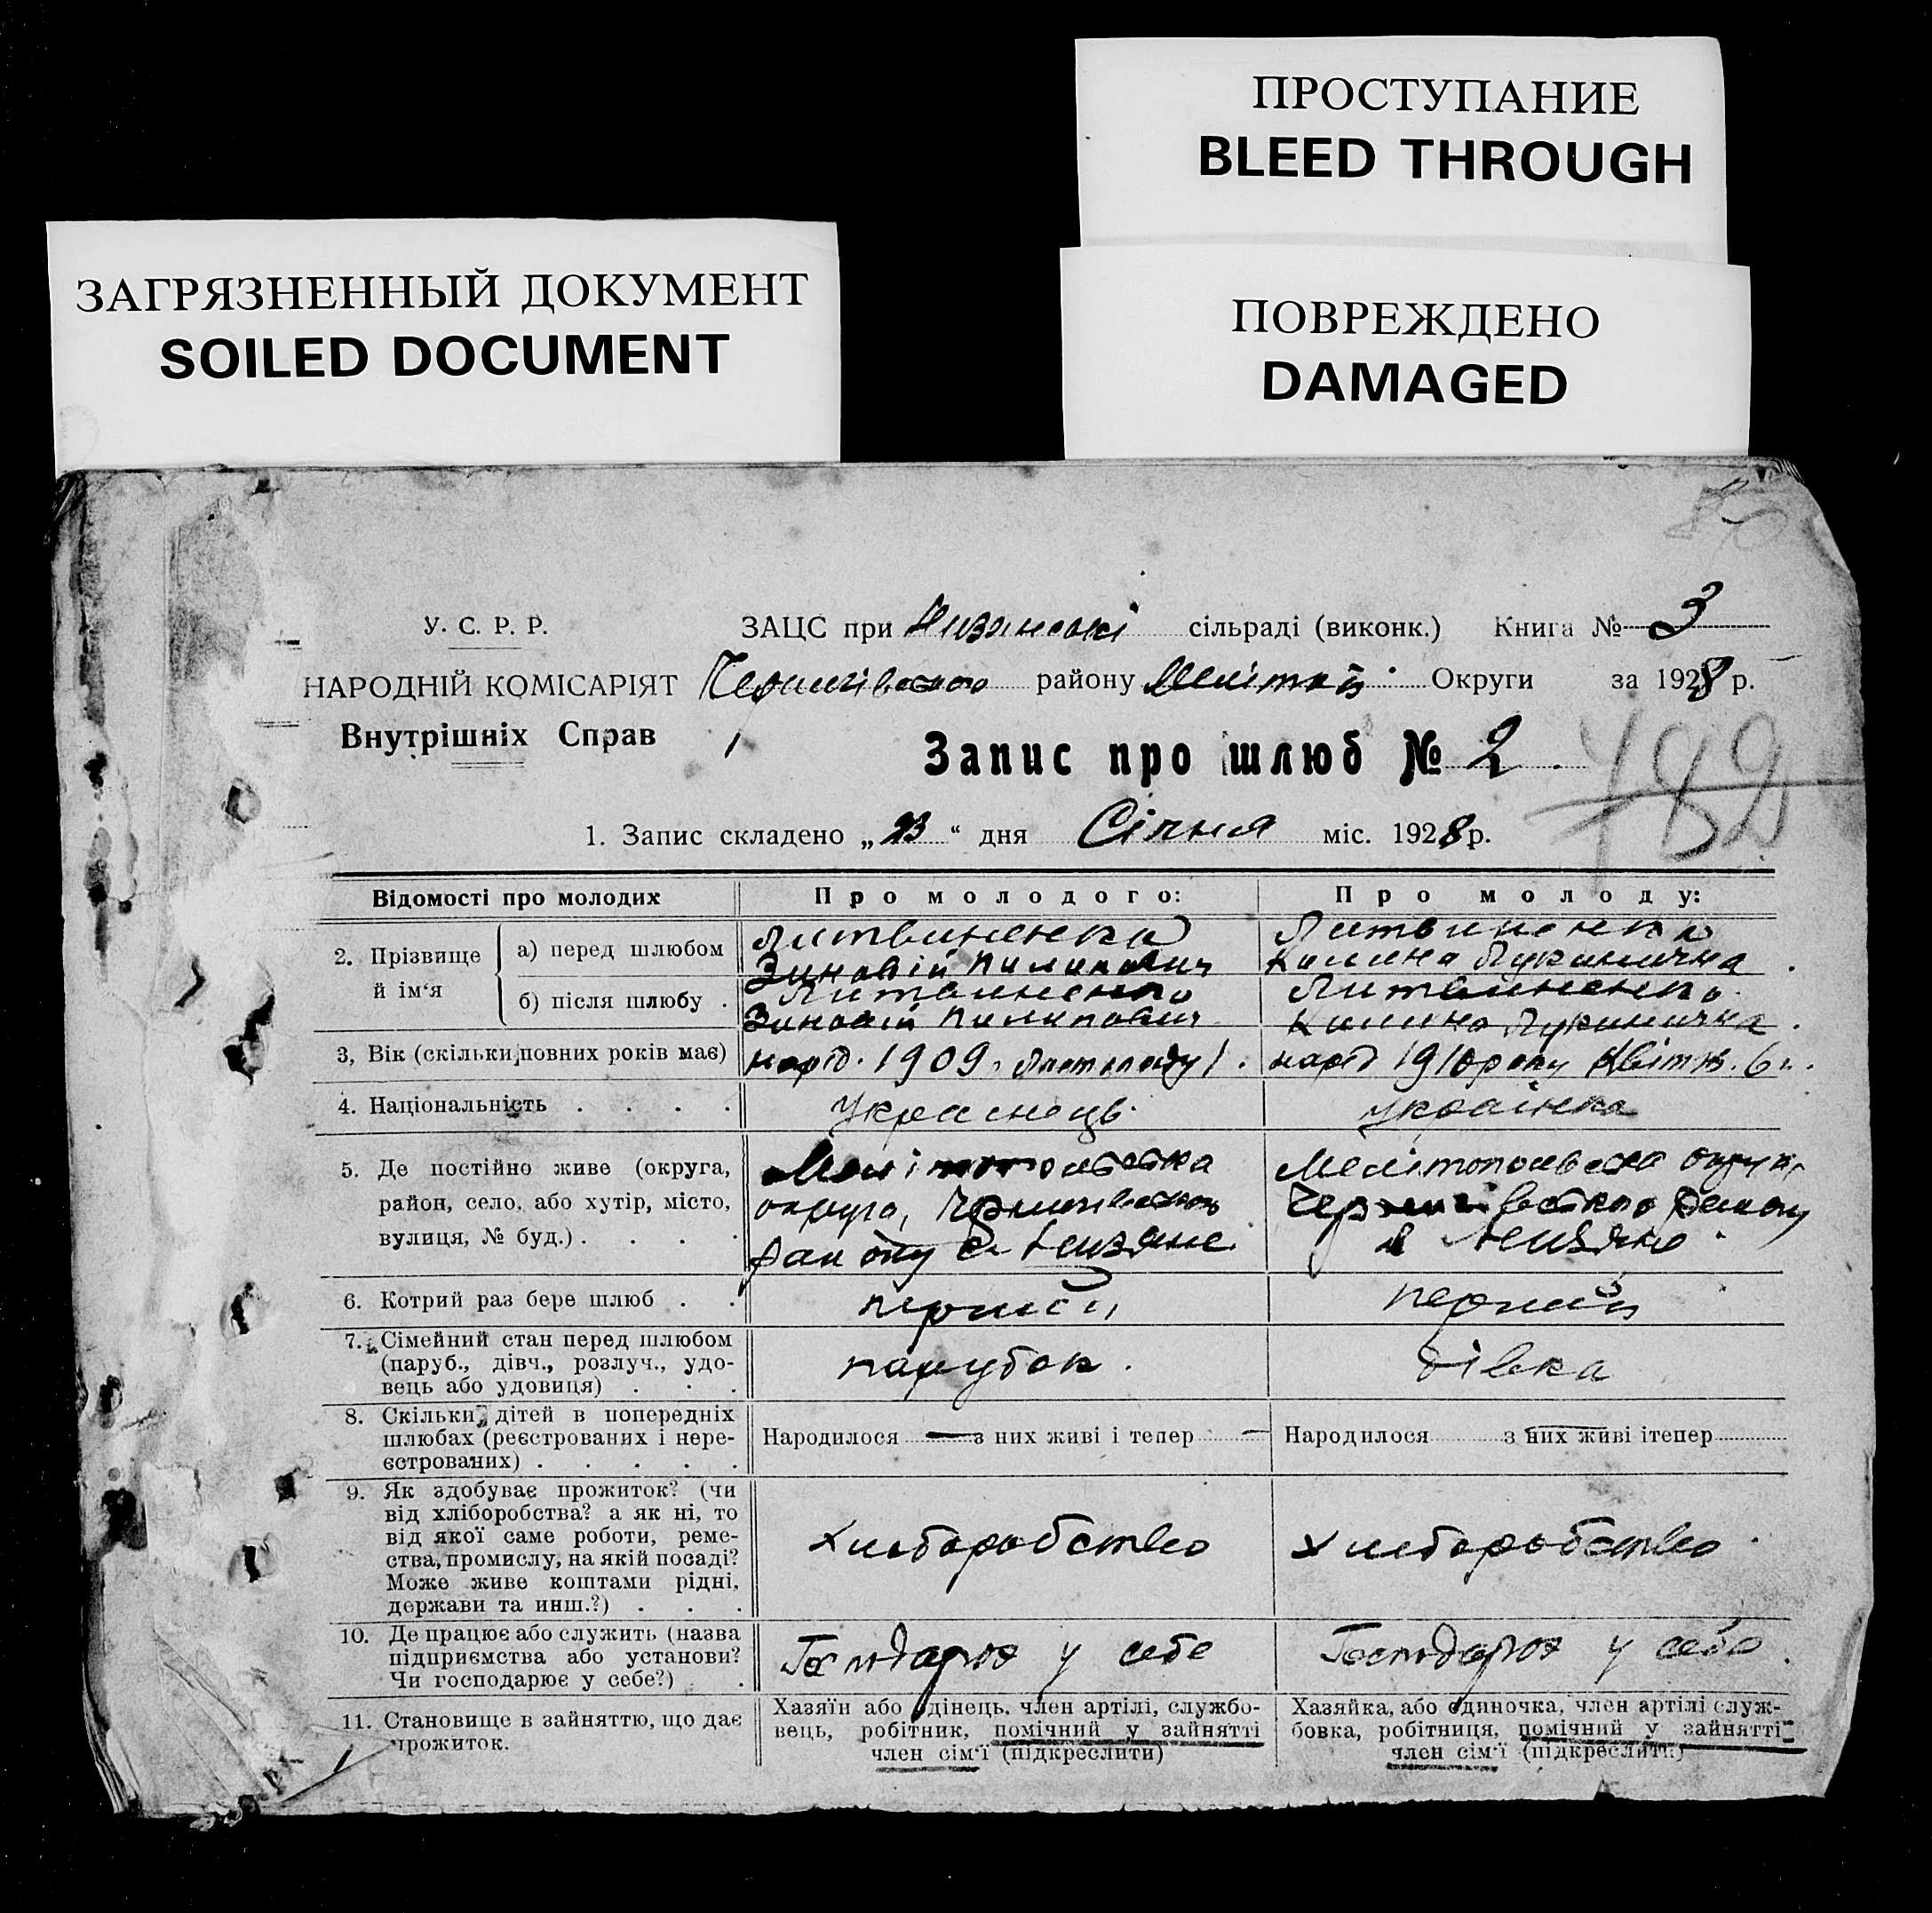 ПРОСТУПАНИЕ
BLEED THROUGH
ЗАГРЯЗНЕННЫЙ ДОКУМЕНТ
SOILED DOCUMENT
ПОВРЕЖДЕНО
DAMAGED
У. С. Р. Р.
ЗАЦС при сільраді (виконк.) Книга № 3
НАРОДНІЙ КОМІСАРІЯТ Чернигівського району Меліт Округи за 1928 р.
Внутрішніх Справ
Запис про шлюб № 2
182
1. Запис складено „23“ дня Січня міс. 1928 р.
Відомості про молодих
Про молодого:
Про молоду:
2. Прізвище й ім‘я
а) перед шлюбом
Литвиненко
Зиновій Пилипович
Литвиненко
Килина Лукинична
б) після шлюбу .
Литвиненко
Зиновій Пилипович
Литвиненко
Килина Лукинична.
3, Вік (скільки повних років має)
нарід. 1909, листопаду 1.
нарід 1910 року Квітн. 6
4. Національність . . . .
Украинець
українка
5. Де постійно живе (округа,
район, село, або хутір, місто,
вулиця, № буд.) . . . .
Мелітопольська
округа, Чернигівського
району с.
Мелітопольска округа,
Чернигівського району
6. Котрий раз бере шлюб . .
перший
перший
7. Сімейний стан перед шлюбом
(паруб., дівч., розлуч., удо-
вець або удовиця) . . .
парубок.
дівка
8. Скільки дітей в попередніх
шлюбах (реєстрованих і нере-
єстрованих) . . . . .
Народилося — з них живі і тепер —
Народилося з них живі ітепер
9. Як здобуває прожиток? (чи
від хліборобства? а як ні, то
від якої саме роботи, реме-
ства, промислу, на якій посаді?
Може живе коштами рідні,
держави та инш.?) . . .
хлиборобство
хлиборобство
10. Де працює або служить (назва
підприємства або установи?
Чи господарює у себе?) .
Господарює у себе
Господарює у себе
11. Становище в зайняттю, що дає
прожиток.
Хазяїн або одінець, член артілі, службо-
вець, робітник, помічний у зайнятті
член сім‘ї (підкреслити)
Хазяйка, або одиночка, член артілі служ-
бовка, робітниця, помічний у зайнятті
член сім‘ї (підкреслити)